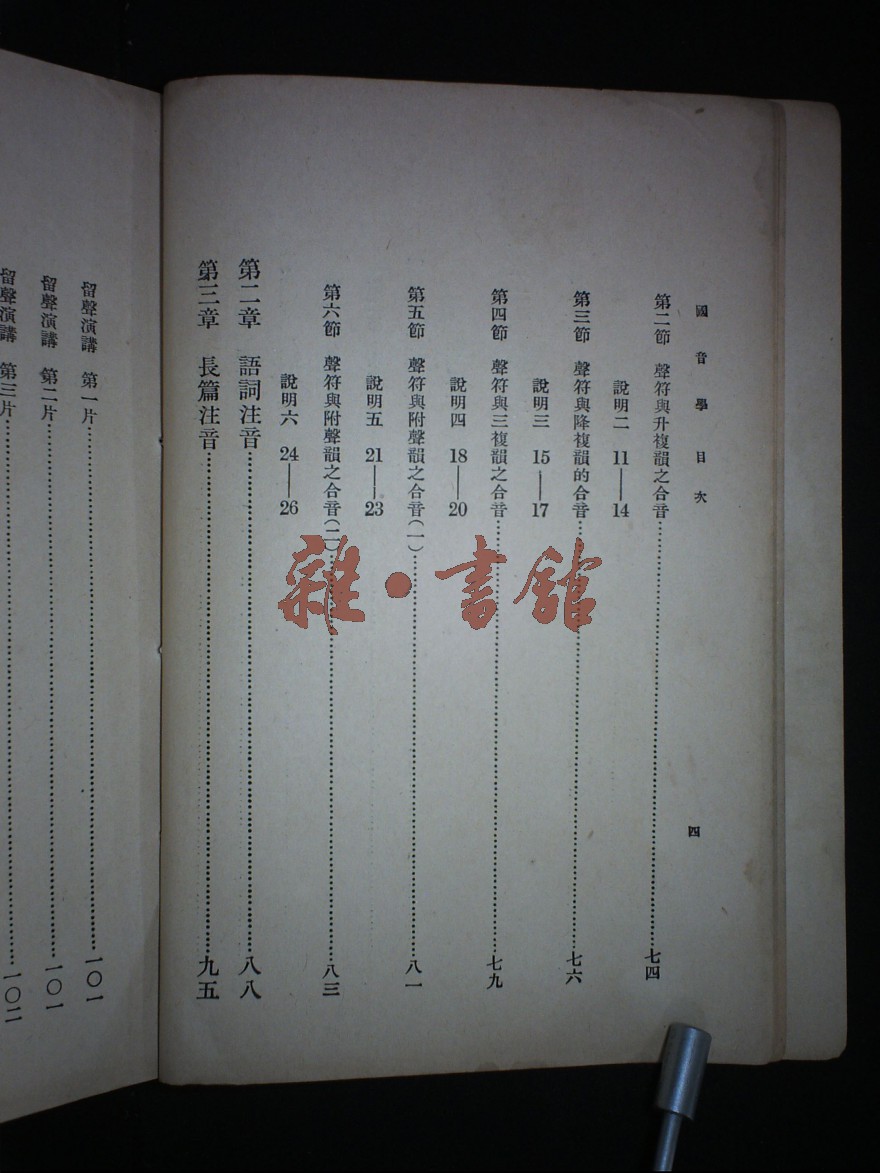 國音學目次
四
第二節 聲符與升複韻之合音……七四
說明二 11——14
第三節 聲符與降複韻的合音……七六
說明三 15——17
第四節 聲符與三複韻之合音……七九
說明四 18——20
第五節 聲符與附聲韻之合音(一)……八一
說明五 21——23
第六節 聲符與附聲韻之合音(二)……八三
說明六 24——26
第二章 語詞注音……八八
第三章 長篇注音……九五
留聲演講 第一片……一〇一
留聲演講 第二片……一〇一
留聲演講 第三片……一〇二
雜·書館